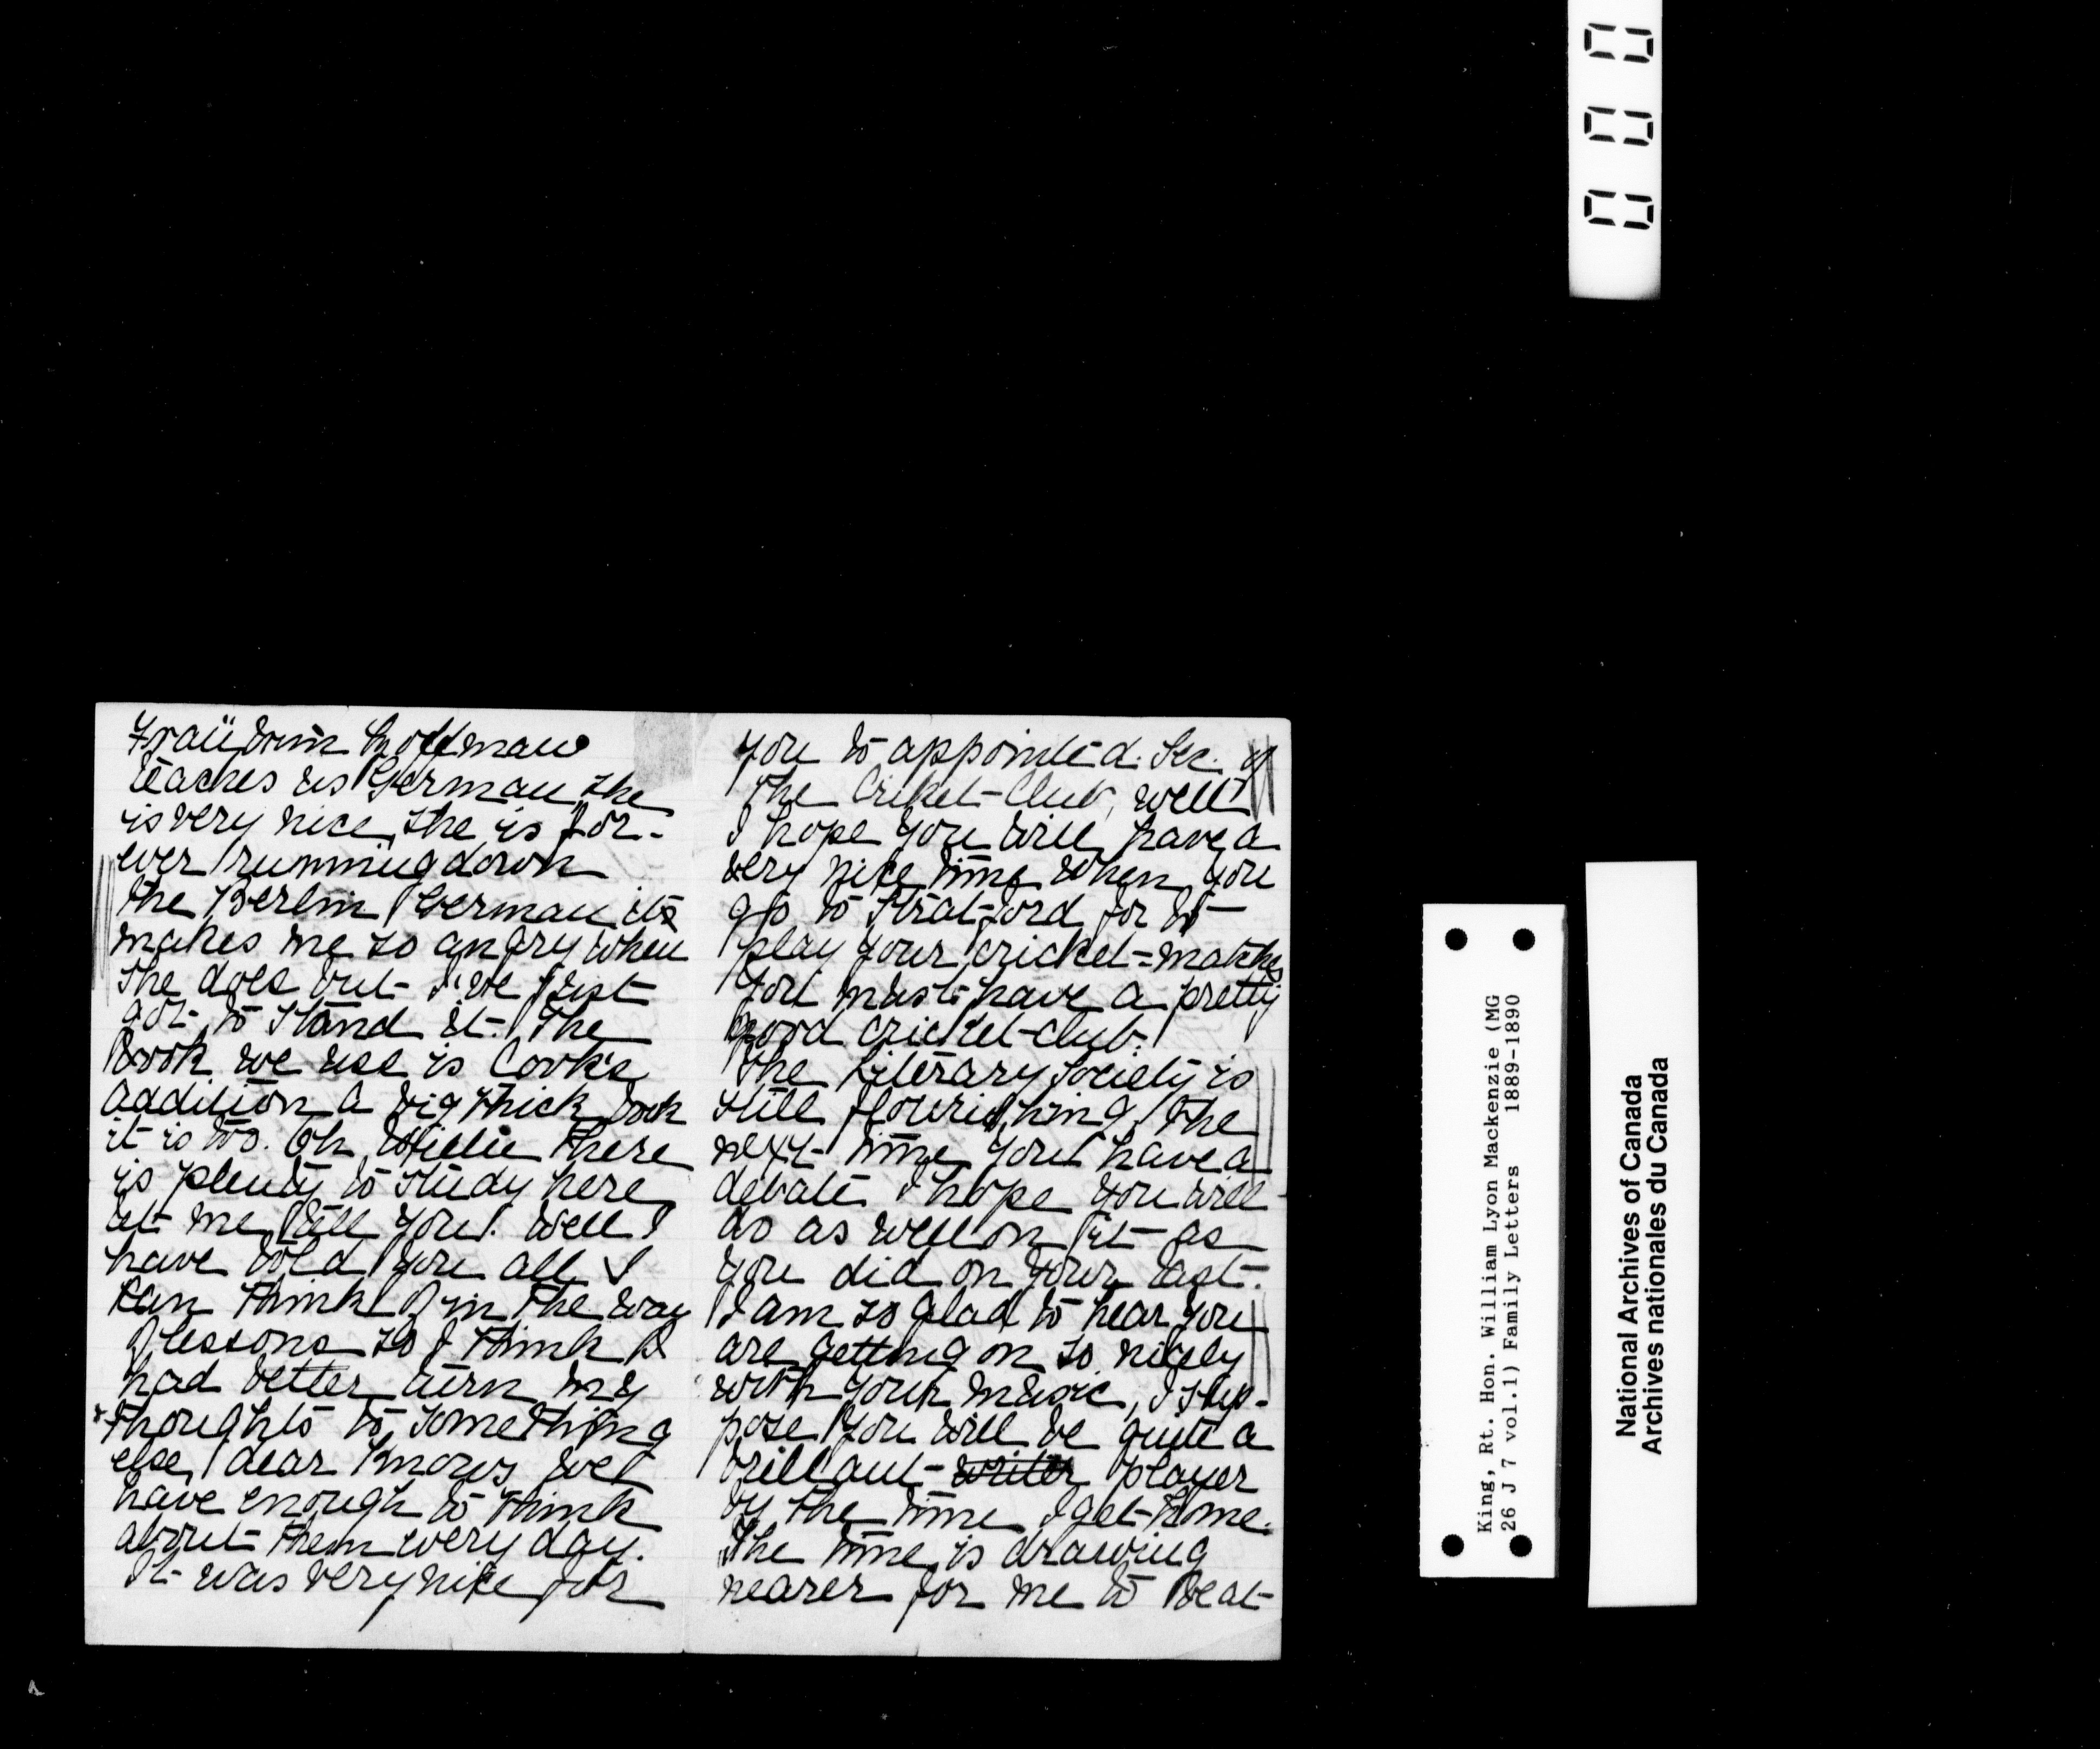 Fraüdrim Hoffman
teaches us German she
is very nice, she is for-
ever running down
the Berlin German its
makes me so angry when
she does but I've just
got to stand it. The
book we use is Cook's
addition a big thick book
it is too. Oh, Willie there
is plenty to study here
let me tell you. Well I
have told you all I
can think of in the way
of lessons so I think I
had better turn my
thoughts to something
else, dear knows we
have enough to think
about them every day.
It was very nice for
you to appointed. Sec. of
the Criket-Club, well
I hope you will have a
very nice time when you
go to Strat-ford for to
play your cricket=matches
You must have a pretty
good cricket-club.
The Literary Society is
still flourishing. The
next time you have a
debate I hope you will
do as well on it as
you did on your last.
I am so glad to hear you
are getting on so nicely
with your music, I sup-
pose you will be quite a
brillant writer player
by the time I get home.
The time is drawing
nearer for me to be at
King, Rt. Hon. William Lyon Mackenzie (MG
26 J 7 vol.1) Family Letters 1889-1890
National Archives of Canada
Archives nationales du Canada